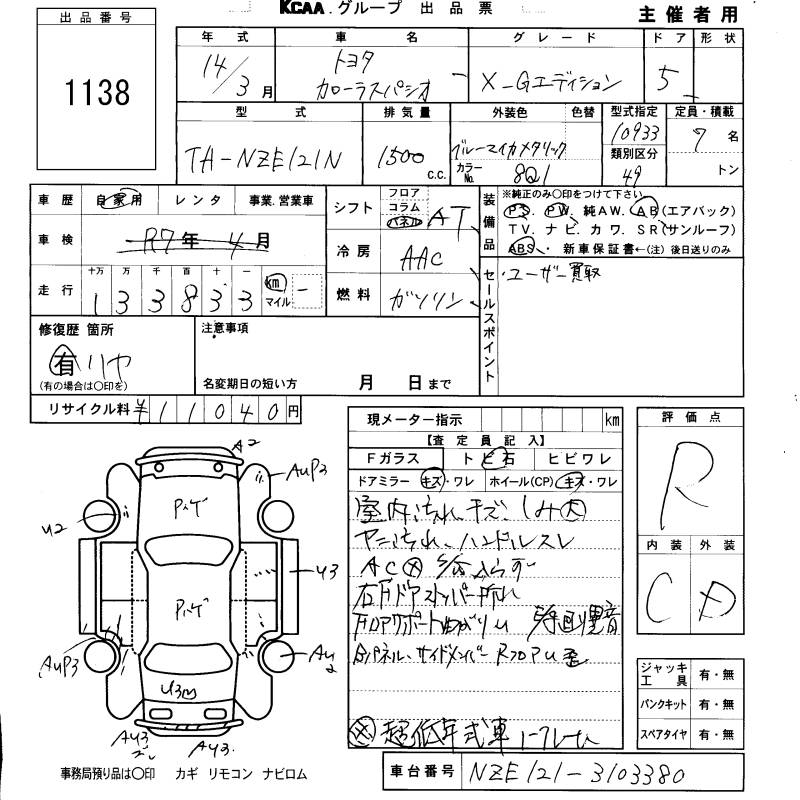 KCAA.グループ 出品票
主催者用
出品番号
1138
年式 車名 グレード ドア 形状
14/3月 トヨタ カローラスパシオ X-Gエディション 5
型式 排気量 外装色 色替 型式指定 定員・積載
TA-NZE121N 1500 c.c. ブルーマイカメタリック 10933 7名
カラーNo. 8Q1 類別区分 49 トン
車歴 自家用 レンタ 事業.営業車
車検 R7年4月
走行 十万 万 千 百 十 一
133833 km マイル
シフト フロア コラム パネル AT
冷房 AAC
燃料 ガソリン
装備品 ※純正のみ〇印をつけて下さい
PS. PW. 純AW. AB(エアバック)
TV. ナビ. カワ. SR(サンルーフ)
ABS.・新車保証書←(注)後日送りのみ
セールスポイント
ユーザー買取
修復歴 箇所
有 リヤ
(有の場合は〇印を)
注意事項
名変期日の短い方 月 日まで
リサイクル料 ¥11040円
現メーター指示 km
【査定員記入】
Fガラス トビ石 ヒビワレ
ドアミラー キズ・ワレ ホイール(CP) キズ・ワレ
室内汚れ、キズ、シミ大
ヤニ汚れ、ハンドルスレ
右Fドアストッパー折れ
Rフロア
超低年式車 ノークレーム
評価点
R
内装 外装
C D
ジャッキ工具 有・無
パンクキット 有・無
スペアタイヤ 有・無
A2
AUP3
U2
Pハゲ
U3
Pハゲ
AUP3
AU2
U3
AY3
AY3.
事務局預り品は〇印 カギ リモコン ナビロム
車台番号 NZE121-3103380